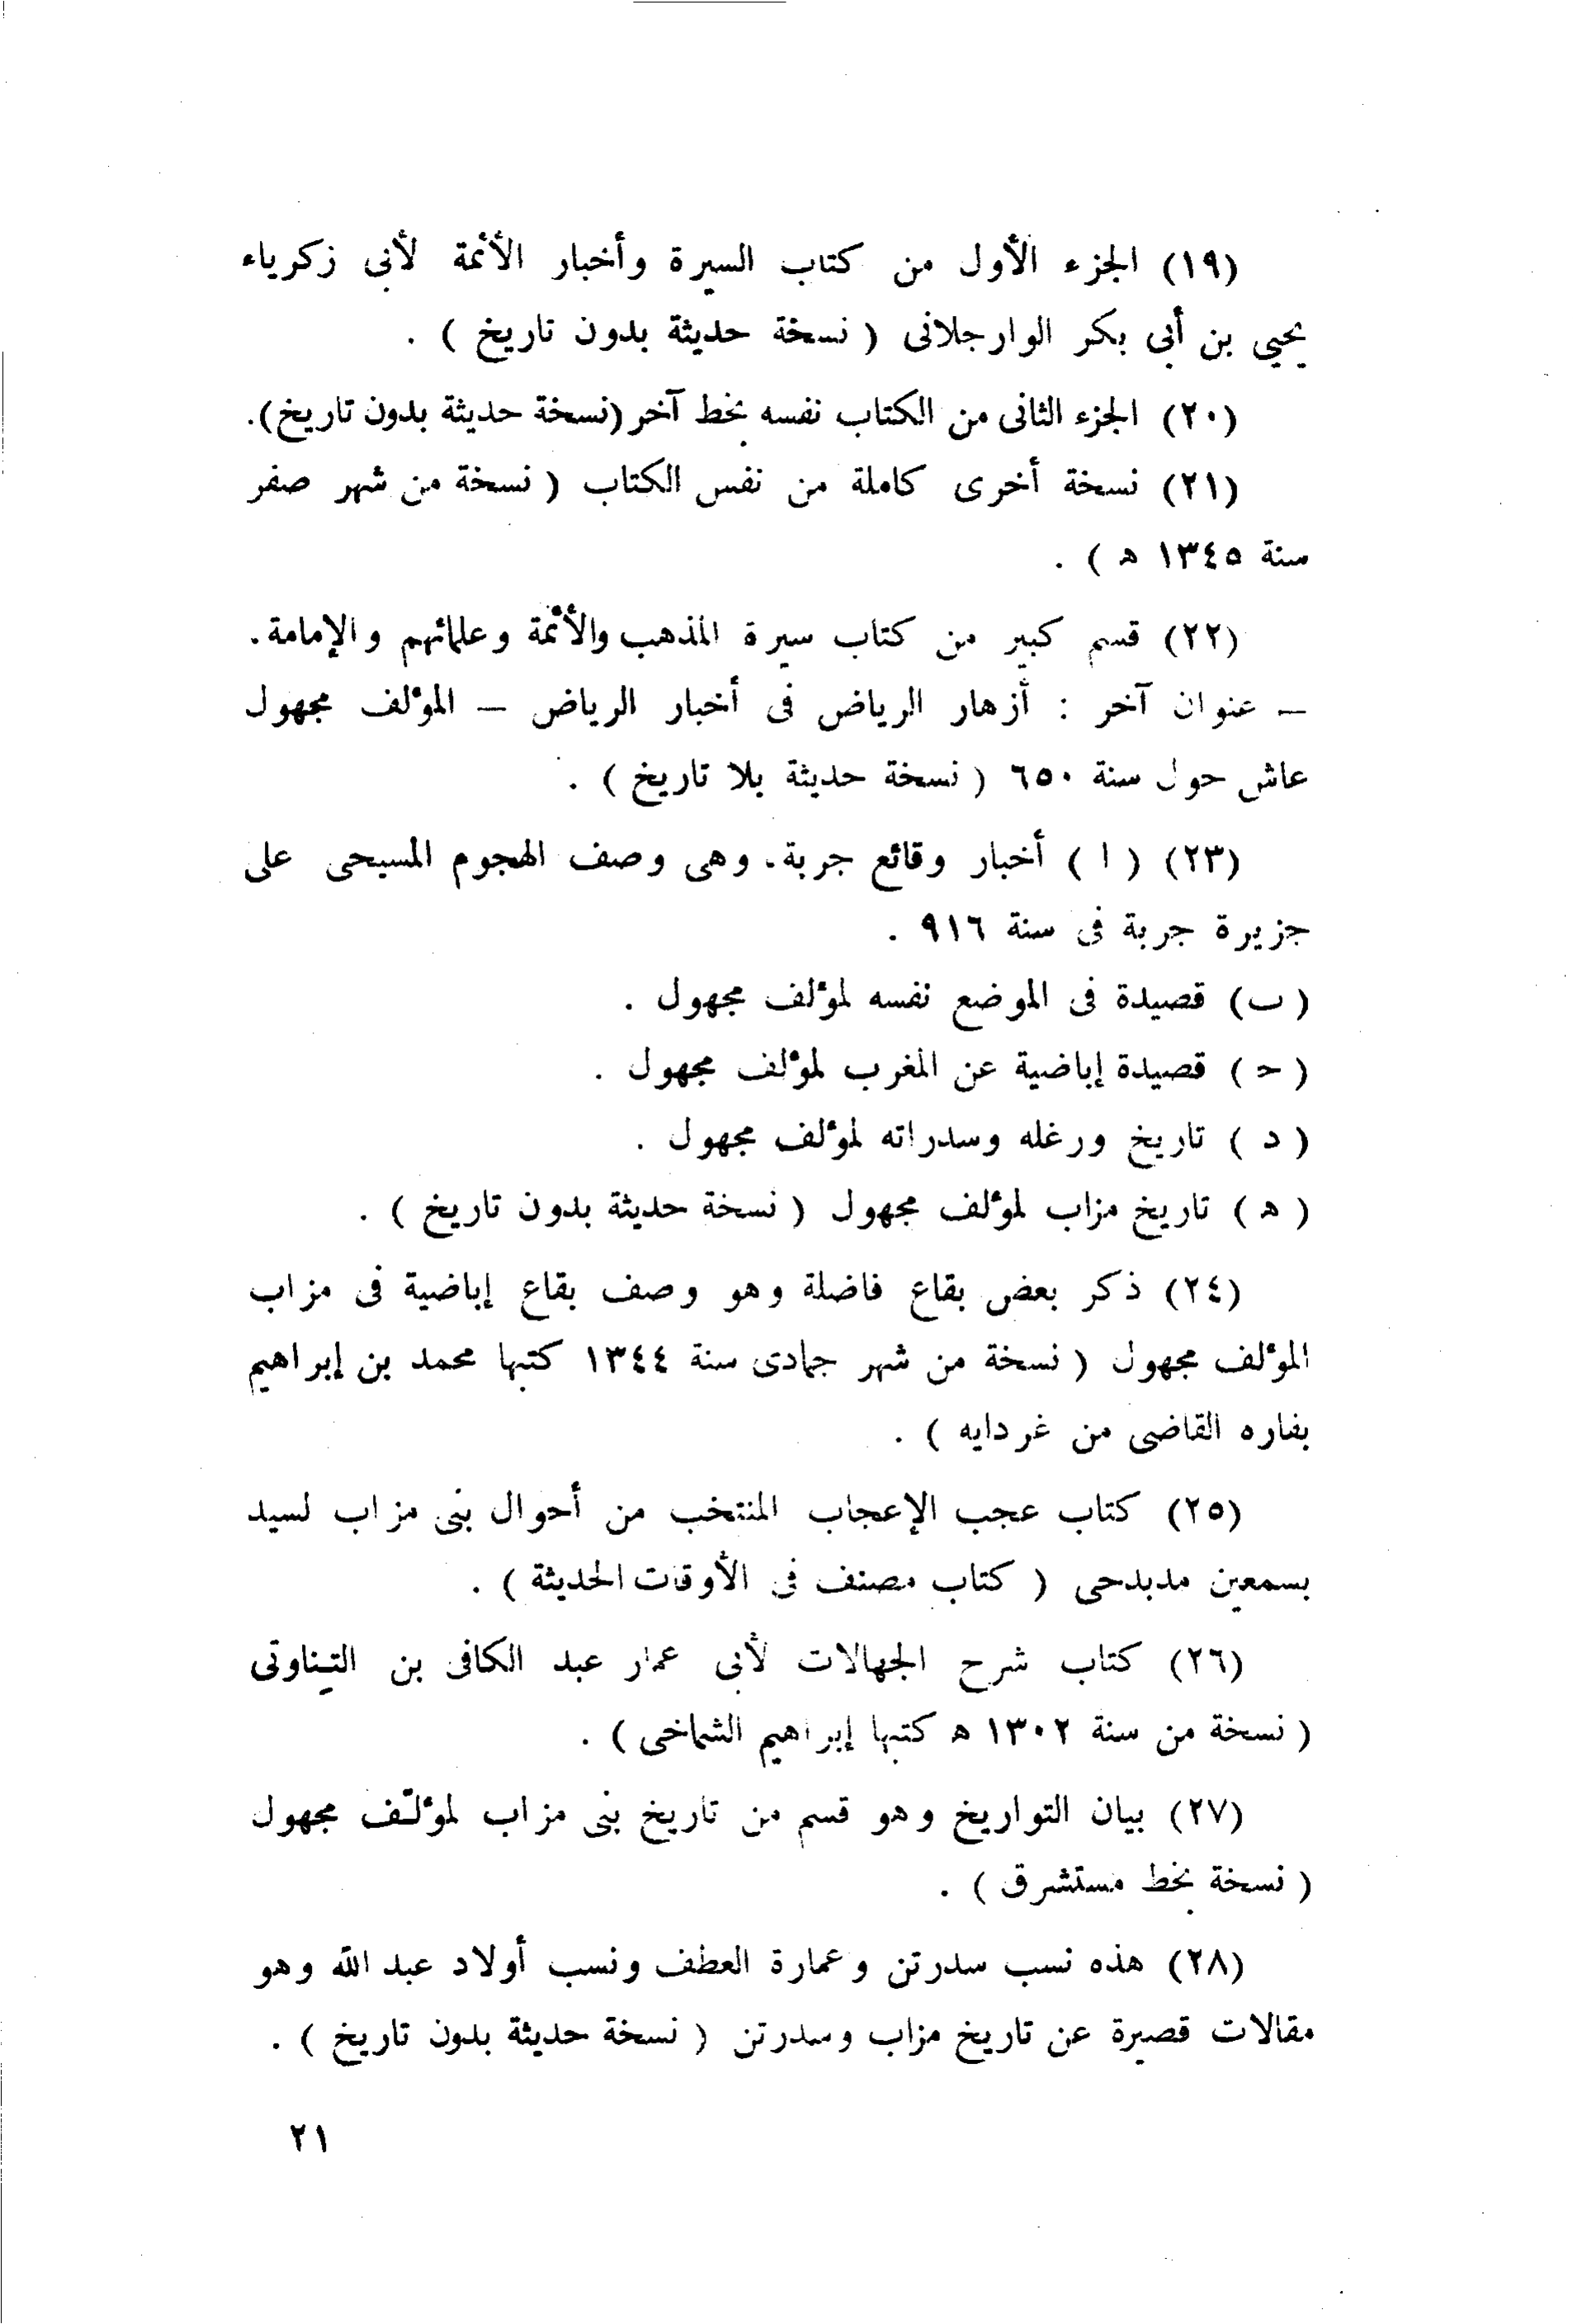 (١٩) الجزء الأول من كتاب السيرة وأخبار الأئمة لأبى زكرياء
يحيي بن أبى بكر الوارجلانى ( نسخة حديثة بدون تاريخ ) .
(٢٠) الجزء الثانى من الكتاب نفسه بخط آخر (نسخة حديثة بدون تاريخ).
(٢١) نسخة أخرى كاملة من نفس الكتاب ( نسخة من شهر صفر
سنة ١٣٤٥ ه ) .
(٢٢) قسم كبير من كتاب سيرة المذهب والأئمة وعلمائهم والإمامة .
– عنوان آخر : أزهار الرياض فى أخبار الرياض – المؤلف مجهول
عاش حول سنة ٦٥٠ ( نسخة حديثة بلا تاريخ ) .
(٢٣) ( ا ) أخبار وقائع جربة . وهى وصف الهجوم المسيحى على
جزيرة جربة فى سنة ٩١٦ .
( ب ) قصيدة فى الموضع نفسه لمؤلف مجهول .
( ح ) قصيدة إباضية عن المغرب لمؤلف مجهول .
( د ) تاريخ ورغله وسدراته لمؤلف مجهول .
( ه ) تاريخ مزاب لمؤلف مجهول ( نسخة حديثة بدون تاريخ ) .
(٢٤) ذكر بعض بقاع فاضلة وهو وصف بقاع إباضية فى مزاب
المؤلف مجهول ( نسخة من شهر جمادى سنة ١٣٤٤ كتبها محمد بن إبراهيم
بفاره القاضى من غردايه ) .
(٢٥) كتاب عجب الإعجاب المنتخب من أحوال بنى مزاب لسيد
بسمعين مدبدحى ( كتاب مصنف فى الأوقات الحديثة ) .
(٢٦) كتاب شرح الجهالات لأبى عمار عبد الكافى بن التيناوتى
( نسخة من سنة ١٣٠٢ ه كتبها إبراهيم الشماخى ) .
(٢٧) بيان التواريخ وهو قسم من تاريخ بنى مزاب لمؤلف مجهول
( نسخة بخط مستشرق ) .
(٢٨) هذه نسب سدرتن وعمارة العطف ونسب أولاد عبد الله وهو
مقالات قصيرة عن تاريخ مزاب وسدرتن ( نسخة حديثة بدون تاريخ ) .
٢١